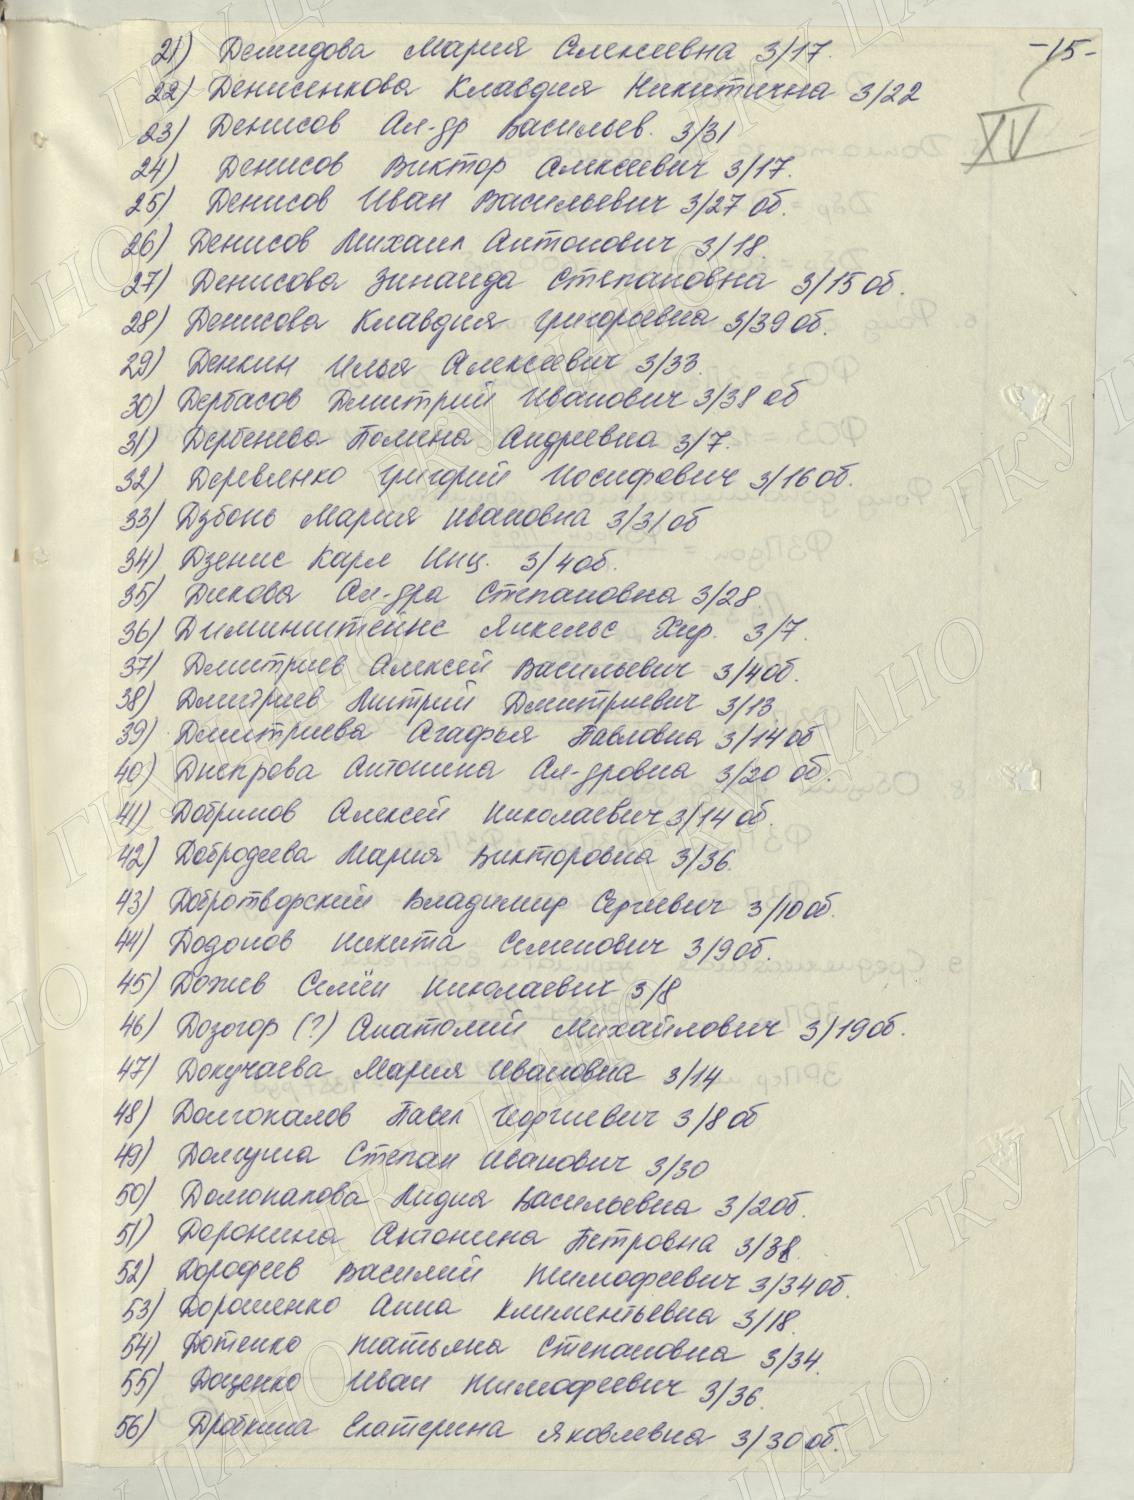 -15-
XV
21) Демидова Мария Алексеевна 3/17.
22) Денисенкова Клавдия Никитична 3/22
23) Денисов Ал-др Васильев. 3/31
24) Денисов Виктор Алексеевич 3/17.
25) Денисов Иван Васильевич 3/27 об.
26) Денисов Михаил Антонович 3/18.
27) Денисова Зинаида Степановна 3/15 об.
28) Денисова Клавдия Григорьевна 3/39 об.
29) Денкин Илья Алексеевич 3/33.
30) Дербасов Дмитрий Иванович 3/38 об
31) Дербенева Полина Андреевна 3/7.
32) Деревленко Григорий Иосифович 3/16 об.
33) Дзбонь Мария Ивановна 3/31 об
34) Дзенис Карл Инц. 3/4 об.
35) Дикова Ал-дра Степановна 3/28.
36) Диминштейнс Янкельс Хир. 3/7.
37) Дмитриев Алексей Васильевич 3/4 об.
38) Дмитриев Митрий Дмитриевич 3/13
39) Дмитриева Агафья Павловна 3/14 об
40) Днепрова Антонина Ал-дровна 3/20 об.
41) Добринов Алексей Николаевич 3/14 об.
42) Добродеева Мария Викторовна 3/36.
43) Добротворский Владимир Сергиевич 3/10 об.
44) Додонов Никита Семенович 3/9 об.
45) Дожив Семён Николаевич 3/8
46) Дозогор (?) Анатолий Михайлович 3/19 об.
47) Докучаева Мария Ивановна 3/14
48) Долгокалов Павел Георгиевич 3/8 об
49) Долгуша Степан Иванович 3/30
50) Домонапова Лидия Васильевна 3/2 об.
51) Доронина Антонина Петровна 3/38.
52) Дорофеев Василий Тимофеевич 3/34 об.
53) Дорошенко Анна Климентьевна 3/18.
54) Дотенко Татьяна Степановна 3/34.
55) Доценко Иван Тимофеевич 3/36.
56) Дробкина Екатерина Яковлевна 3/30 об.
ГКУ ЦАНО